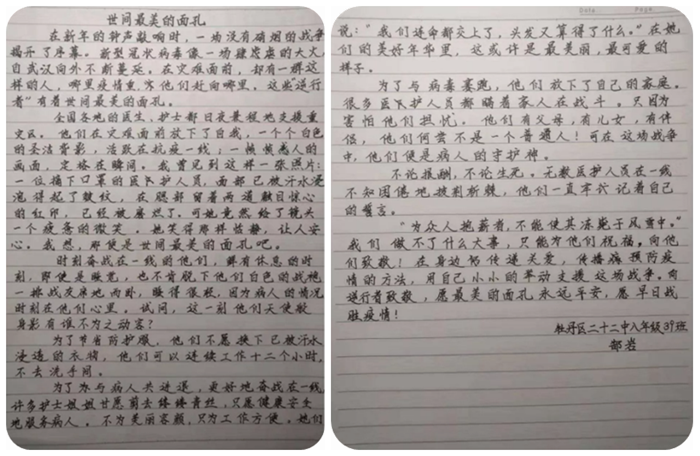 世间最美的面孔
在新年的钟声敲响时，一场没有硝烟的战争
揭开了序幕。新型冠状病毒像一场肆虐的大火，
自武汉向外不断蔓延。在灾难面前，却有一群这
样的人，哪里疫情重，他们赶向哪里，这些逆行
者"有着世间最美的面孔。
全国各地的医生、护士都日夜兼程地支援重
灾区。他们在灾难面前放下了自我，一个个白色
的圣洁背影，活跃在抗疫一线；一帧帧感人的
画面，定格在瞬间。我曾见到这样一张照片：
一位摘下口罩的医护人员，面部已被汗水浸
泡得起了皱纹，在脸部留着两道触目惊心
的红印，已经被磨烂了。可她竟然给了镜头
一个疲惫的微笑。她笑得那样恬静，让人安
心。我想，那便是世间最美的面孔吧。
时刻奋战在一线的他们，鲜有休息的时
刻，即使是睡觉，也不肯脱下他们白色的战袍
一挨战友席地而卧，睡得很轻，因为病人的情况
时刻在他们心里。试问，这一刻他们天使般
身影有谁不为之动容？
为了节省防护服，他们不愿换下已被汗水
浸透的衣物，他们可以连续工作十二个小时，
不去洗手间。
为了办与病人共进退，更好地奋战在一线，
许多护士姐姐甘愿剪去绺绺青丝，只愿健康安全
地服务病人。不为美丽容颜，只为工作方便。她们
说："我们连命都交上了，头发又算得了什么。"在她
们的美好年华里，这或许是最美丽，最可爱的
样子。
为了与病毒赛跑，他们放下了自己的家庭。
很多医护人员都瞒着家人在战斗。只因为
害怕他们担忧。他们有父母，有儿女，有伴
侣，他们何尝不是一个普通人！可在这场战争
中，他们便是病人的守护神。
不论报酬，不论生死。无数医护人员在一线
不知困倦地披荆斩棘，他们一直牢记着自己
的誓言。
"为众人抱薪者，不能使其冻毙于风雪中。"
我们做不了什么大事，只能为他们祝福，向他
们致敬！在身边传递关爱，传播病预防疫
情的方法，用自己小小的举动支援这场战争。向
逆行者致敬，愿最美的面孔永远平安，愿早日战
胜疫情！
牡丹区二十二中八年级39班
郜岩